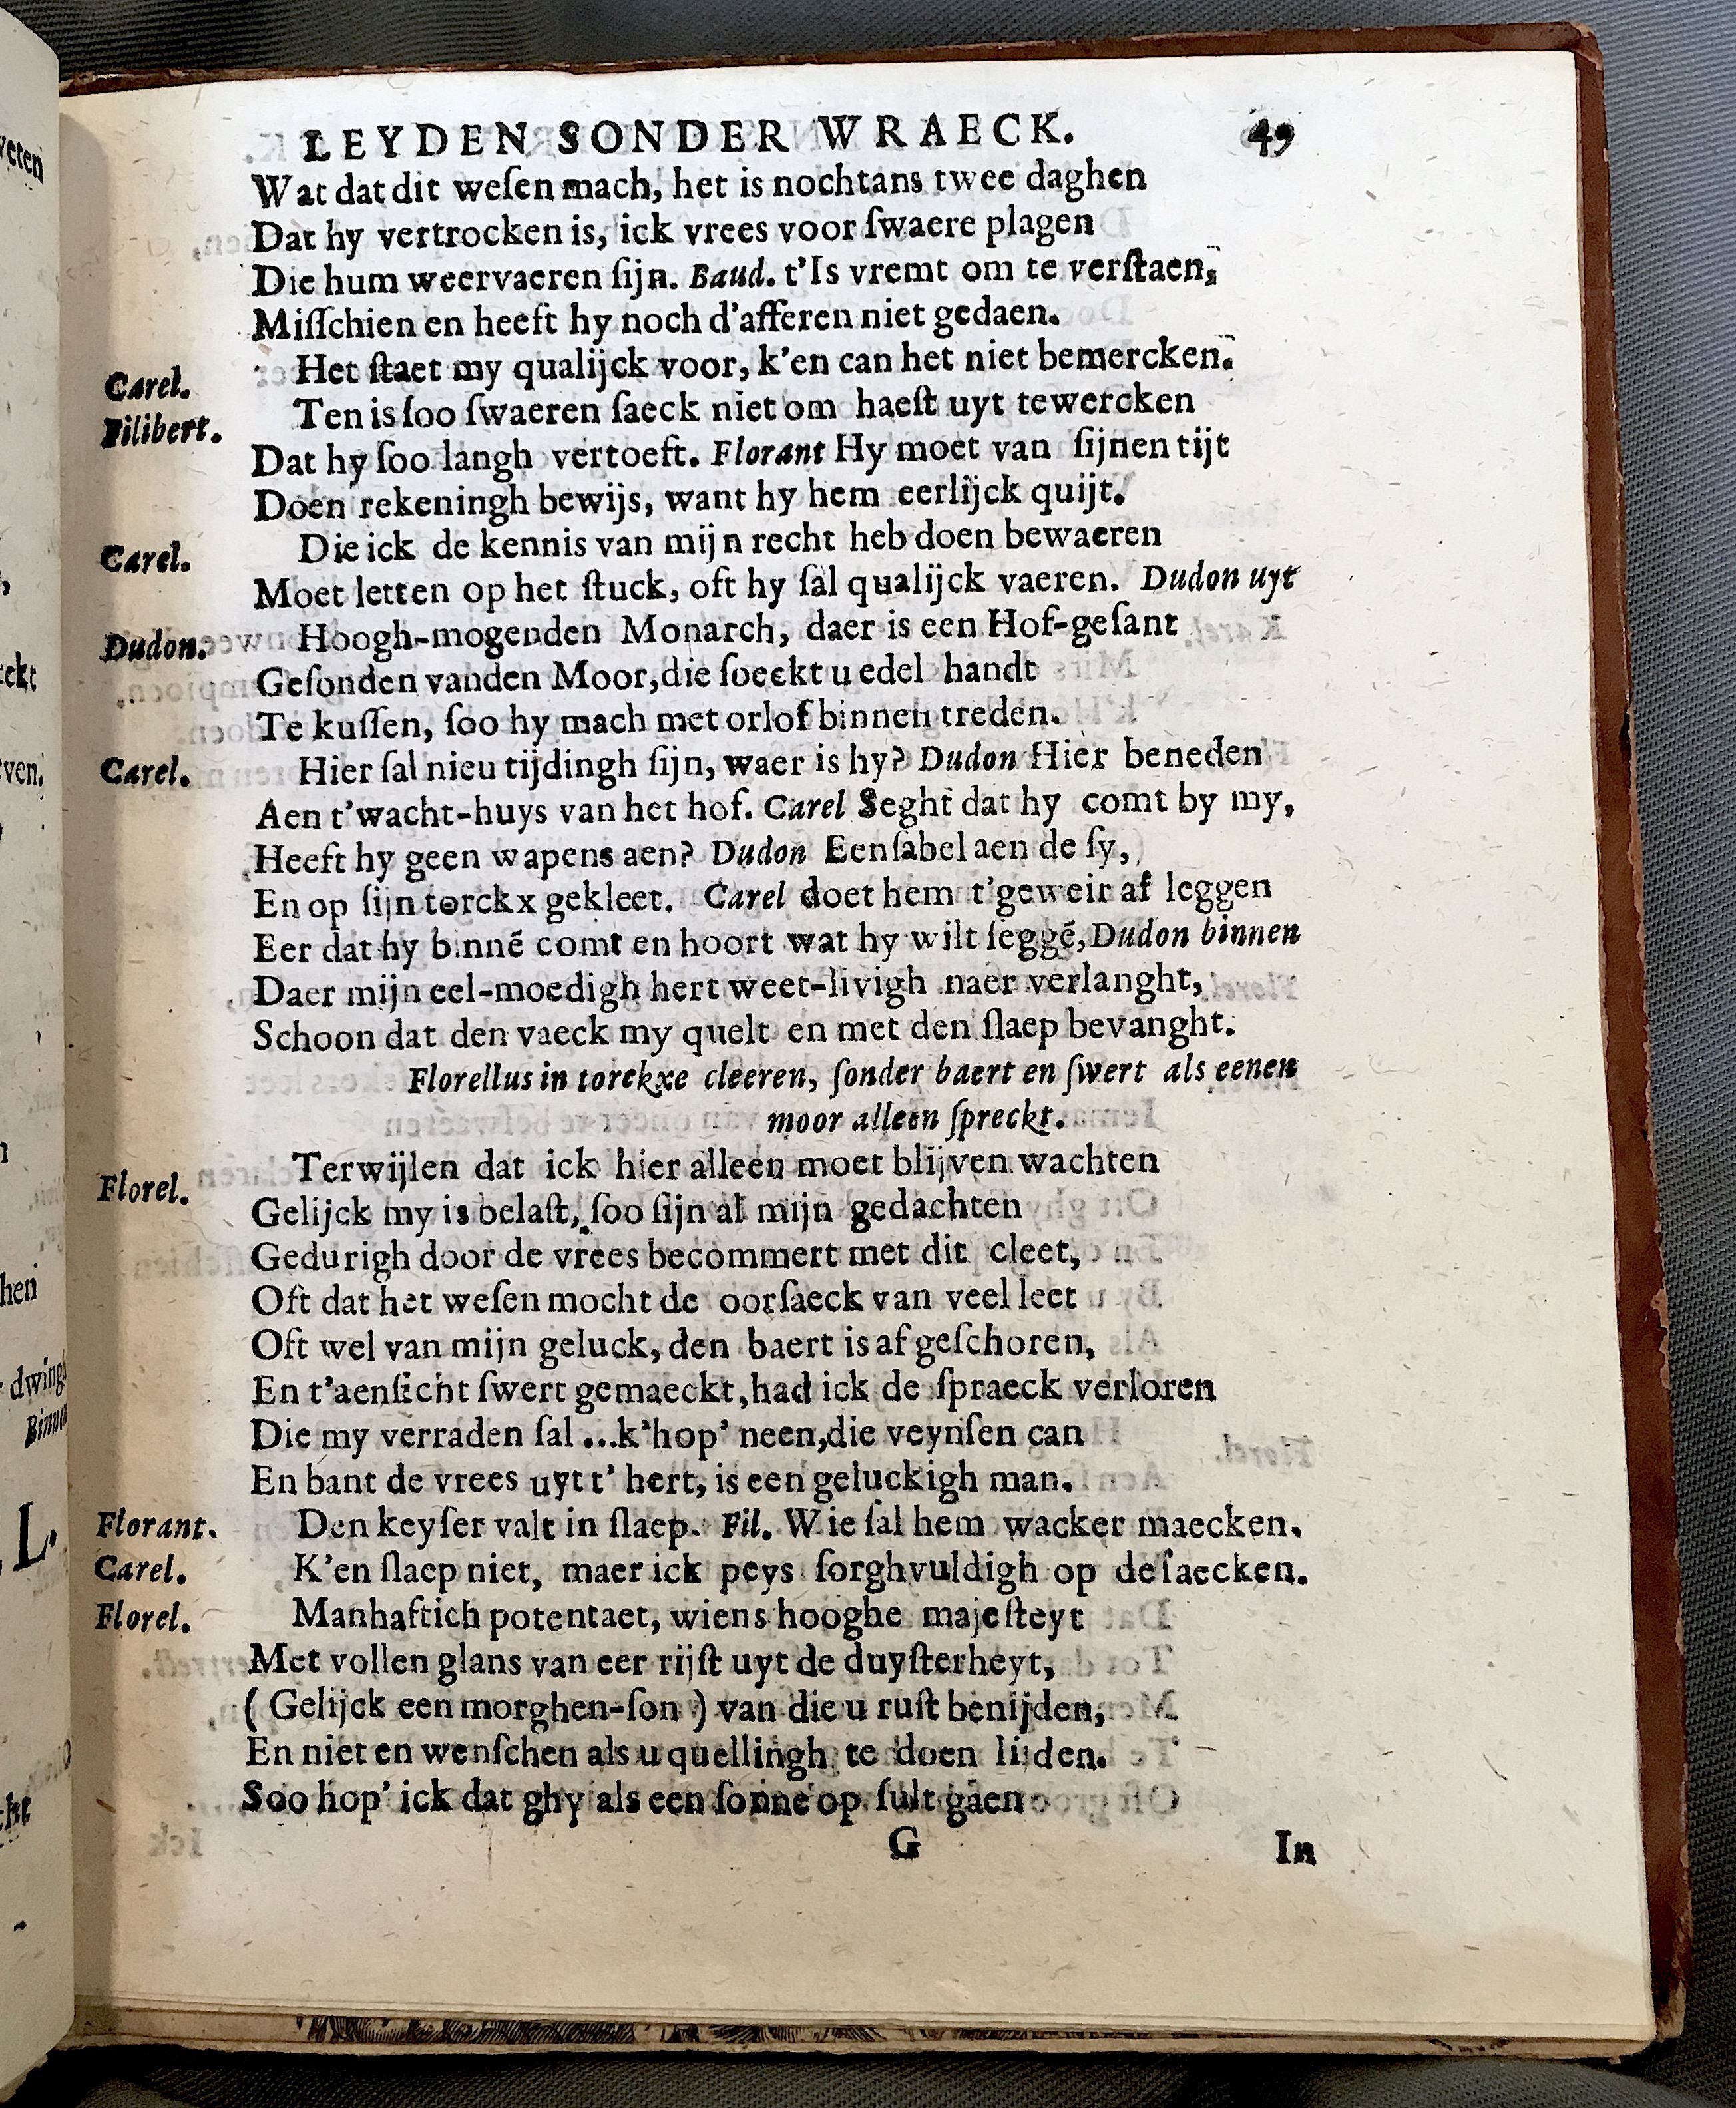 LEYDEN SONDER WRAECK. 49
Wat dat dit weſen mach, het is nochtans twee daghen
Dat hy vertrocken is, ick vrees voor ſwaere plagen
Die hum weervaeren ſijn. Baud. t'Is vremt om te verſtaen,
Miſſchien en heeft hy noch d'afferen niet gedaen.
Carel. Het ſtaet my qualijck voor, k'en can het niet bemercken.
Filibert. Ten is ſoo ſwaeren ſaeck niet om haeſt uyt te wercken
Dat hy ſoo langh vertoeft. Florant Hy moet van ſijnen tijt
Doen rekeningh bewijs, want hy hem eerlijck quijt.
Carel. Die ick de kennis van mijn recht heb doen bewaeren
Moet letten op het ſtuck, oft hy ſal qualijck vaeren. Dudon uyt
Dudon. Hoogh-mogenden Monarch, daer is een Hof-geſant
Geſonden vanden Moor, die ſoeckt u edel handt
Te kuſſen, ſoo hy mach met orlof binnen treden.
Carel. Hier ſal nieu tijdingh ſijn, waer is hy? Dudon Hier beneden
Aen t'wacht-huys van het hof. Carel Seght dat hy comt by my,
Heeft hy geen wapens aen? Dudon Een ſabel aen de ſy,
En op ſijn torckx gekleet. Carel doet hem t'geweir af leggen
Eer dat hy binnē comt en hoort wat hy wilt ſeggē, Dudon binnen
Daer mijn eel-moedigh hert weet-livigh naer verlanght,
Schoon dat den vaeck my quelt en met den ſlaep bevanght.
Florellus in torckxe cleeren, ſonder baert en ſwert als eenen
moor alleen ſpreckt.
Florel. Terwijlen dat ick hier alleen moet blijven wachten
Gelijck my is belaſt, ſoo ſijn al mijn gedachten
Gedurigh door de vrees becommert met dit cleet,
Oft dat het weſen mocht de oorſaeck van veel leet
Oft wel van mijn geluck, den baert is af geſchoren,
En t'aenſicht ſwert gemaeckt, had ick de ſpraeck verloren
Die my verraden ſal ...k'hop' neen, die veynſen can
En bant de vrees uyt t' hert, is een geluckigh man.
Florant. Den keyſer valt in ſlaep. Fil. Wie ſal hem wacker maecken.
Carel. K'en ſlaep niet, maer ick peys ſorghvuldigh op de ſaecken.
Florel. Manhaftich potentaet, wiens hooghe majeſteyt
Met vollen glans van eer rijſt uyt de duyſterheyt,
( Gelijck een morghen-ſon ) van die u ruſt benijden,
En niet en wenſchen als u quellingh te doen lijden.
Soo hop' ick dat ghy als een ſonne op ſult gaen
G In